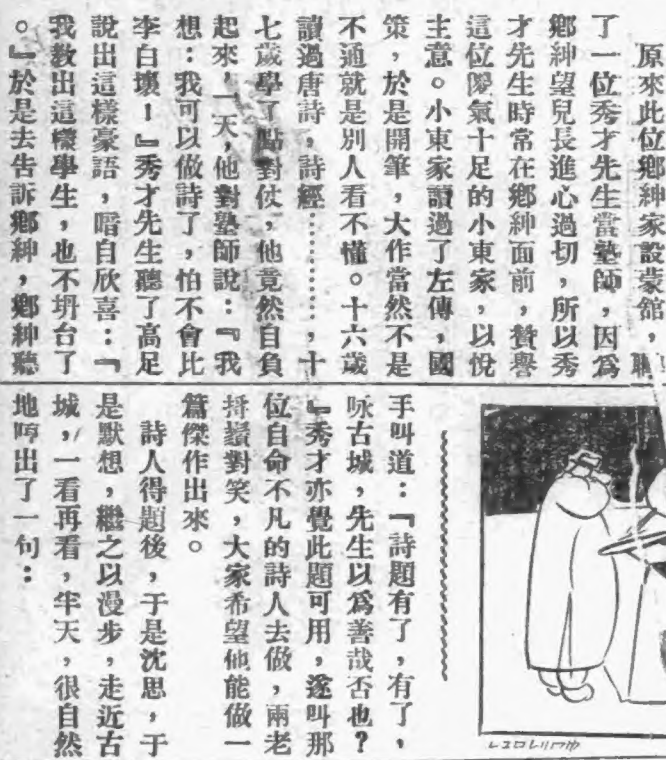 原來此位鄉紳家設蒙館，
了一位秀才先生當塾師，因爲
鄉紳望兒長進心過切，所以秀
才先生時常在鄉紳面前，贊譽
這位闊氣十足的小東家，以悅
主意。小東家讀過了左傳，國
策，於是開筆，大作當然不是
不通就是別人看不懂。十六歲
讀過唐詩，詩經…………，十
七歲學了點對仗，他竟然自負
起來，一天，他對塾師說：『我
想：我可以做詩了，怕不會比
李白壞！』秀才先生聽了高足
說出這樣豪語，暗自欣喜：『
我教出這樣學生，也不坍台了
。』於是去告訴鄉紳，鄉紳聽
手叫道：『詩題有了，有了，
咏古城，先生以爲善哉否也？
』秀才亦覺此題可用，遂叫那
位自命不凡的詩人去做，兩老
捋鬚對笑，大家希望他能做一
篇傑作出來。
詩人得題後，于是沈思，于
是默想，繼之以漫步，走近古
城，一看再看，半天，很自然
地哼出了一句：